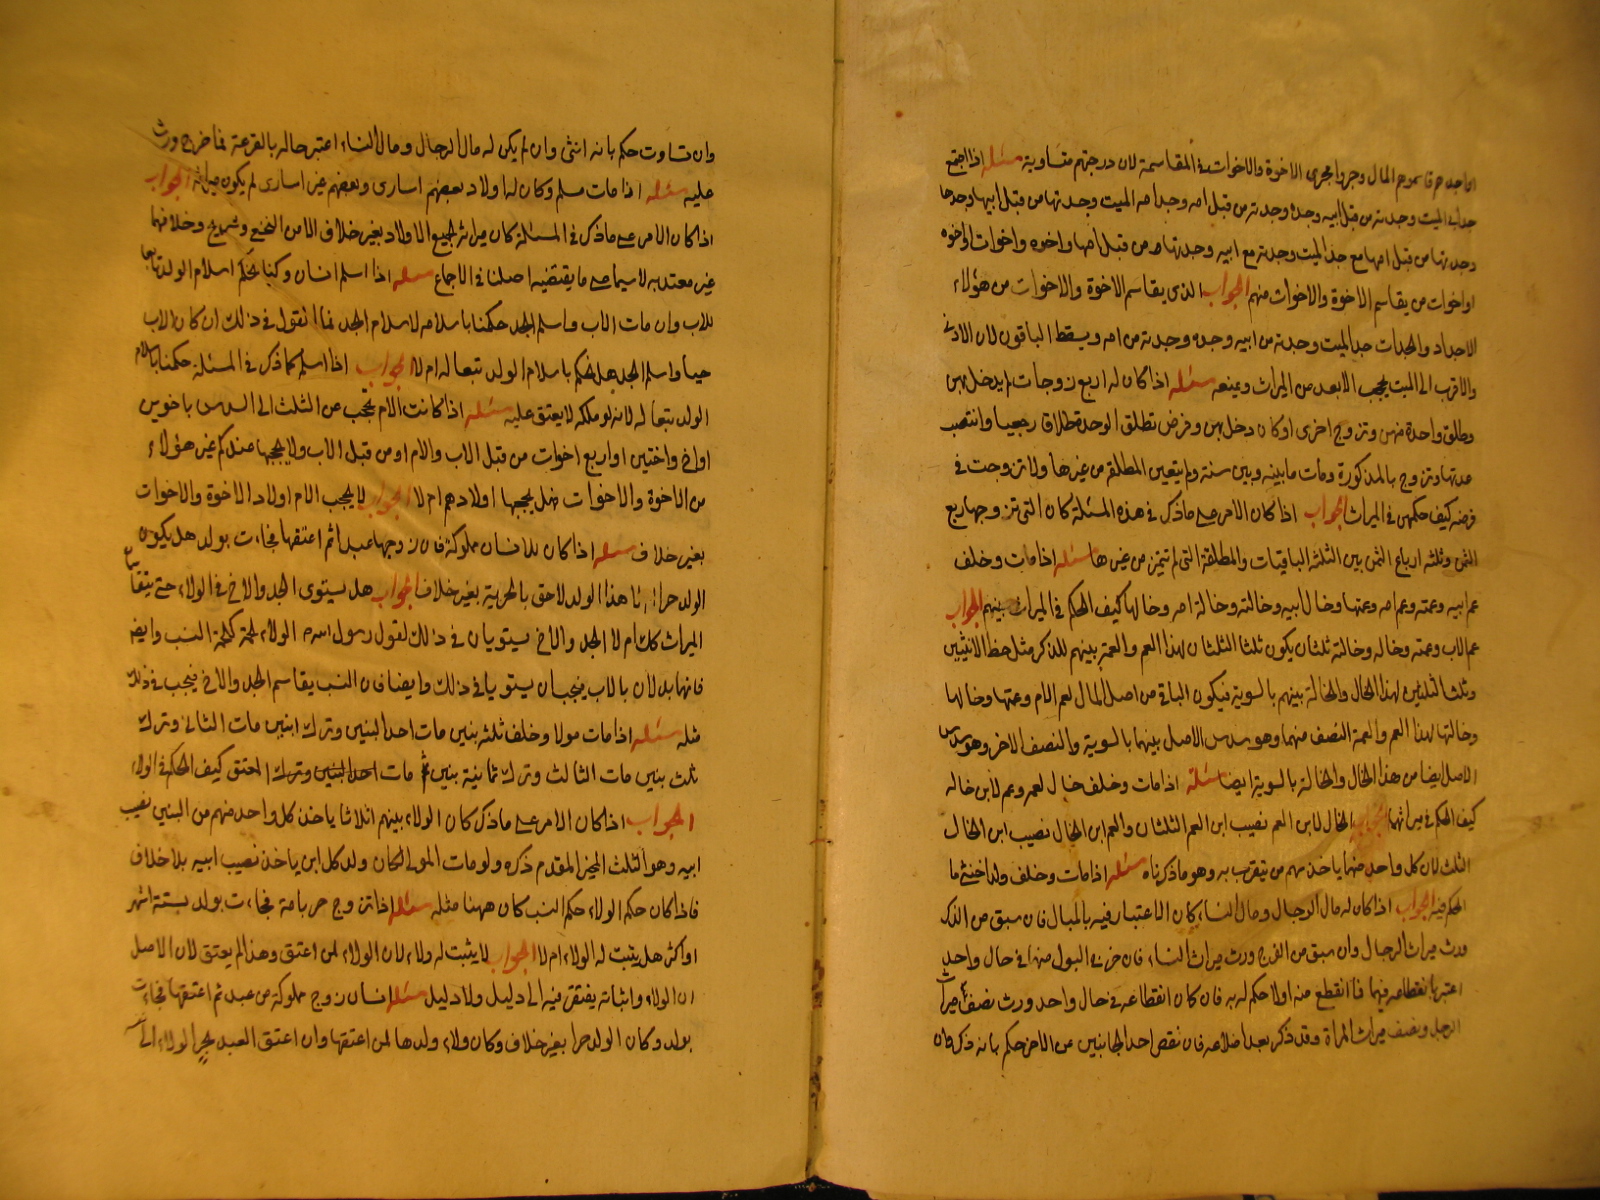 او احدهم قاسموهم المال وجروا مجرى الاخوة والاخوات في المقاسمة لان درجتهم متساوية مسئله اذا اجتمع
جدا اب الميت وجدته من قبل ابيه وجده وجدته من قبل امه وجد ام الميت وجدتها من قبل ابيها وجدها
وجدتها من قبل امها مع جد الميت وجدته مع ابيه وجدتها من قبل امها واخوه واخوات او اخوه
او اخوات من يقاسم الاخوة والاخوات منهم الجواب الذى يقاسم الاخوة والاخوات من هؤلاء
الاجداد والجدات جد الميت وجدته من ابيه وجده وجدته من امه ويسقط الباقون لان الادنى
والاقرب الى الميت يحجب الابعد من الميراث ويمنعه مسئله اذا كان له اربع زوجات لم يدخل بهن
وطلق واحدة منهن وتزوج اخرى او كان دخل بهن وفرض تطلق الوحدة طلاق رجعيا وانتصب
عدتها وتزوج بالمذكورة ومات ما بينه وبين سنة ولم يتعين المطلقة من غيرها ولا تزوجت في
فرضه كيف حكمهن في الميراث الجواب اذا كان الامر على ما ذكر في هذه المسئلة كان التى تزوجها ربع
الثمن وثلثه ارباع الثمن بين الثلثه الباقيات والمطلقة التى لم تتميز من غيرها مسئله اذا مات وخلف
عم ابيه وعمته وعم امه وعمتها وخال ابيه وخالته وخالة امه وخالها كيف الحكم في الميراث بينهم الجواب
عم الاب وعمته وخاله وخالته ثلثان يكون ثلثا الثلثان لهذا العم والعمة بينهم للذكر مثل حظ الانثيين
وثلث الثلثين لهذا الخال والخالة بينهم بالسوية فيكون الباقى من اصل المال لعم الام وعمتها وخالها
وخالتها لهذا العم والعمة النصف منهما وهو سدس الاصل بينهما بالسوية والنصف الاخر وهو سدس
الاصل ايضا من هذا الخال والخالة بالسوية ايضا مسئلة اذا مات وخلف خال لعمه وعم لابن خاله
كيف الحكم في ميراثهما الجواب الخال لابن العم نصيب ابن العم الثلثان والعم ابن الخال نصيب ابن الخال
الثلث لان كل واحد منهما ياخذ سهم من يتقرب به وهو ما ذكرناه مسئله اذا مات وخلف ولدا خنثى ما
الحكم فيه الجواب اذا كان له مال الرجال ومال النساء كان الاعتبار فيه بالمبال فان سبق من الذكر
ورث ميراث الرجال وان سبق من الفرج ورث ميراث النساء فان خرج البول منهما في حال واحد
اعتبر بانقطاعه فيهما فما انقطع منه اولا حكم له به فان كان انقطاعه في حال واحد ورث نصف ميراث
الرجل ونصف ميراث المراة وقد ذكر بعد اضلاعه فان نقص احد الجانبين عن الاخر حكم بانه ذكر وان
وان تساوت حكم بانه انثى وان لم يكن له مال الرجال ومال النساء اعتبر حاله بالقرعة فما خرج ورث
عليه مسئله اذا مات مسلم وكان له اولاد بعضهم اسارى وبعضهم غير اسارى لم يكون ميراثه الجواب
اذا كان الامر على ما ذكر في المسئلة كان ميراثه لجميع الاولاد بغير خلاف الا من النخعي وشريح وخلافهما
غير معتد به لا سيما على ما يقتضيه اصلنا في الاجماع مسئله اذا اسلم انسان وكنا نحكم اسلام الولد تابعا
للاب وان مات الاب واسلم الجد حكمنا باسلامه لاسلام الجد فما القول في ذلك ان كان الاب
حيا واسلم الجد هل نحكم باسلام الولد تبعا له ام لا الجواب اذا اسلم كما ذكر في المسئلة حكمنا باسلام
الولد تبعا له لانه لو ملكه لا يعتق عليه مسئله اذا كانت الام تحجب من الثلث الى السدس باخوين
او اخ واختين او اربع اخوات من قبل الاب والام او من قبل الاب ولا يحجبها عندكم غير هؤلاء
من الاخوة والاخوات فهل يحجبها اولادهم ام لا الجواب لا يحجب الام اولاد الاخوة والاخوات
بغير خلاف مسئله اذا كان للانسان مملوكة فان زوجها عبدا ثم اعتقها فجاءت بولد هل يكون
الولد حرا هذا الولد لاحق بالحرية بغير خلاف الجواب هل يستوى الجد والاخ في الولاء حتى يتقاسما
الميراث كله ام لا الجد والاخ يستويان في ذلك لقول رسول الله ص الولاء لحمة كلحمة النسب وايضا
فانهما يدلان بالاب فيجب ان يستويا في ذلك وايضا فان النسب يقاسم الجد والاخ فيجب في ذلك
مثله مسئله اذا مات مولا وخلف ثلثه بنين مات احد البنين وترك ابنين مات الثانى وترك
ثلث بنين مات الثالث وترك ثمانية بنين ثم مات احد البنين وترك المعتق كيف الحكم في الولاء
الجواب اذا كان الامر على ما ذكر كان الولاء بينهم اثلاثا ياخذ كل واحد منهم من البنين نصيب
ابيه وهو الثلث للخبر المقدم ذكره ولو مات المولى لكان ولد كل ابن ياخذ نصيب ابيه بلا خلاف
فاذا كان حكم الولاء حكم النسب كان ههنا مثله مسئله اذا تزوج حر بامة فجاءت بولد بستة اشهر
او اكثر هل يثبت له الولاء ام لا الجواب لا يثبت له ولاء لان الولاء لمن اعتق وهذا لم يعتق لان الاصل
ان الولاء واثباته يفتقر فيه الى دليل ولا دليل مسئله انسان زوج مملوكة من عبد ثم اعتقها فجاءت
بولد وكان الولد حرا بغير خلاف وكان ولاء ولدها لمن اعتقها وان اعتق العبد يجر الولاء الى